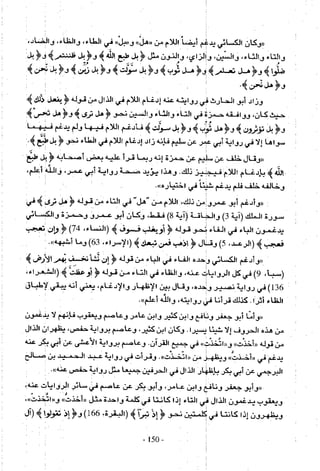 «وكان الكسائي يدغم أيضاً اللام من «هل» و«بل» في الطاء، والظاء، والضاد،
والتاء والثاء، والسين، والزاي، والنون مثل ﴿ بل طبع الله ﴾ و﴿ بل ظننتم ﴾ و﴿ بل
ضلوا ﴾ و﴿ هل تعلم ﴾ و﴿ هل ثوب ﴾ و﴿ بل سولت ﴾ و﴿ بل زين ﴾ و﴿ بل نحن ﴾
و﴿ هل نحن ﴾.
وزاد أبو الحارث في روايته عنه إدغام اللام في الذال من قوله ﴿ يفعل ذلك ﴾
حيث كان، ووافقه حمزة في التاء والثاء والسين نحو ﴿ هل ترى ﴾ و﴿ هل تحس ﴾
و﴿ بل تؤثرون ﴾ و﴿ هل ثوب ﴾ و﴿ بل سولت ﴾ فأدغم اللام فيها ولم يدغم فيما
سواها إلا في رواية أبي عمر عن سليم فإنه زاد إدغام اللام في الطاء نحو ﴿ بل طبع ﴾.
«وقال خلف عن سليم عن حمزة إنه ربما قرأ عليه بعض أصحابه ﴿ بل طبع
الله ﴾ بإدغام اللام فيجيز ذلك. وهذا يؤيد صحة رواية أبي عمر، والله أعلم،
وخالفه خلف فلم يدغم شيئاً في اختياره».
«وأدغم أبو عمرو من ذلك، اللام من "هل" في التاء من قوله ﴿ هل ترى ﴾ في
سورة الملك (آية 3) والحاقة (آية 8) فقط، وكان أبو عمرو وحمزة والكسائي
يدغمون الباء في الفاء نحو قوله ﴿ أو يغلب فسوف ﴾ (النساء، 74) ﴿ وإن تعجب
فعجب ﴾ (الرعد، 5) وقال ﴿ اذهب فمن تبعك ﴾ (الإسراء، 63) وما أشبهه».
«وأدغم الكسائي وحده الفاء في الباء من قوله ﴿ إن نشأ نخسف بهم الأرض ﴾
(سبأ، 9) في كل الروايات عنه، والظاء في التاء من قوله ﴿ أو عظت ﴾ (الشعراء،
136) في رواية نصير وحده، وقال بين الإظهار والإدغام، يعني أنه يبقي لإطباق
الظاء أثراً. كذلك قرأنا في روايته، والله أعلم».
«وأما أبو جعفر ونافع وابن كثير وابن عامر وعاصم ويعقوب فإنهم لا يدغمون
من هذه الحروف إلا شيئاً يسيراً. وكان ابن كثير، وعاصم برواية حفص، يظهران الذال
من قوله «أخذت» و«اتخذت» في جميع القرآن. وعاصم برواية الأعشى عن أبي بكر عنه
يدغم في «أخذت» ويظهر من «اتخذت». وقرأت في رواية عبد الحميد بن صالح
البرجمي عن أبي بكر بإظهار الذال في الحرفين جميعا مثل رواية حفص عنه».
«وأبو جعفر ونافع وابن عامر، وأبو بكر عن عاصم في سائر الروايات عنه،
ويعقوب يدغمون الذال في التاء إذا كانتا في كلمة واحدة مثل «أخذت» و«اتخذت»،
ويظهرون إذا كانتا في كلمتين نحو ﴿ إذ تبرأ ﴾ (البقرة، 166) و﴿ إذ تقولوا ﴾ (آل
- 150 -